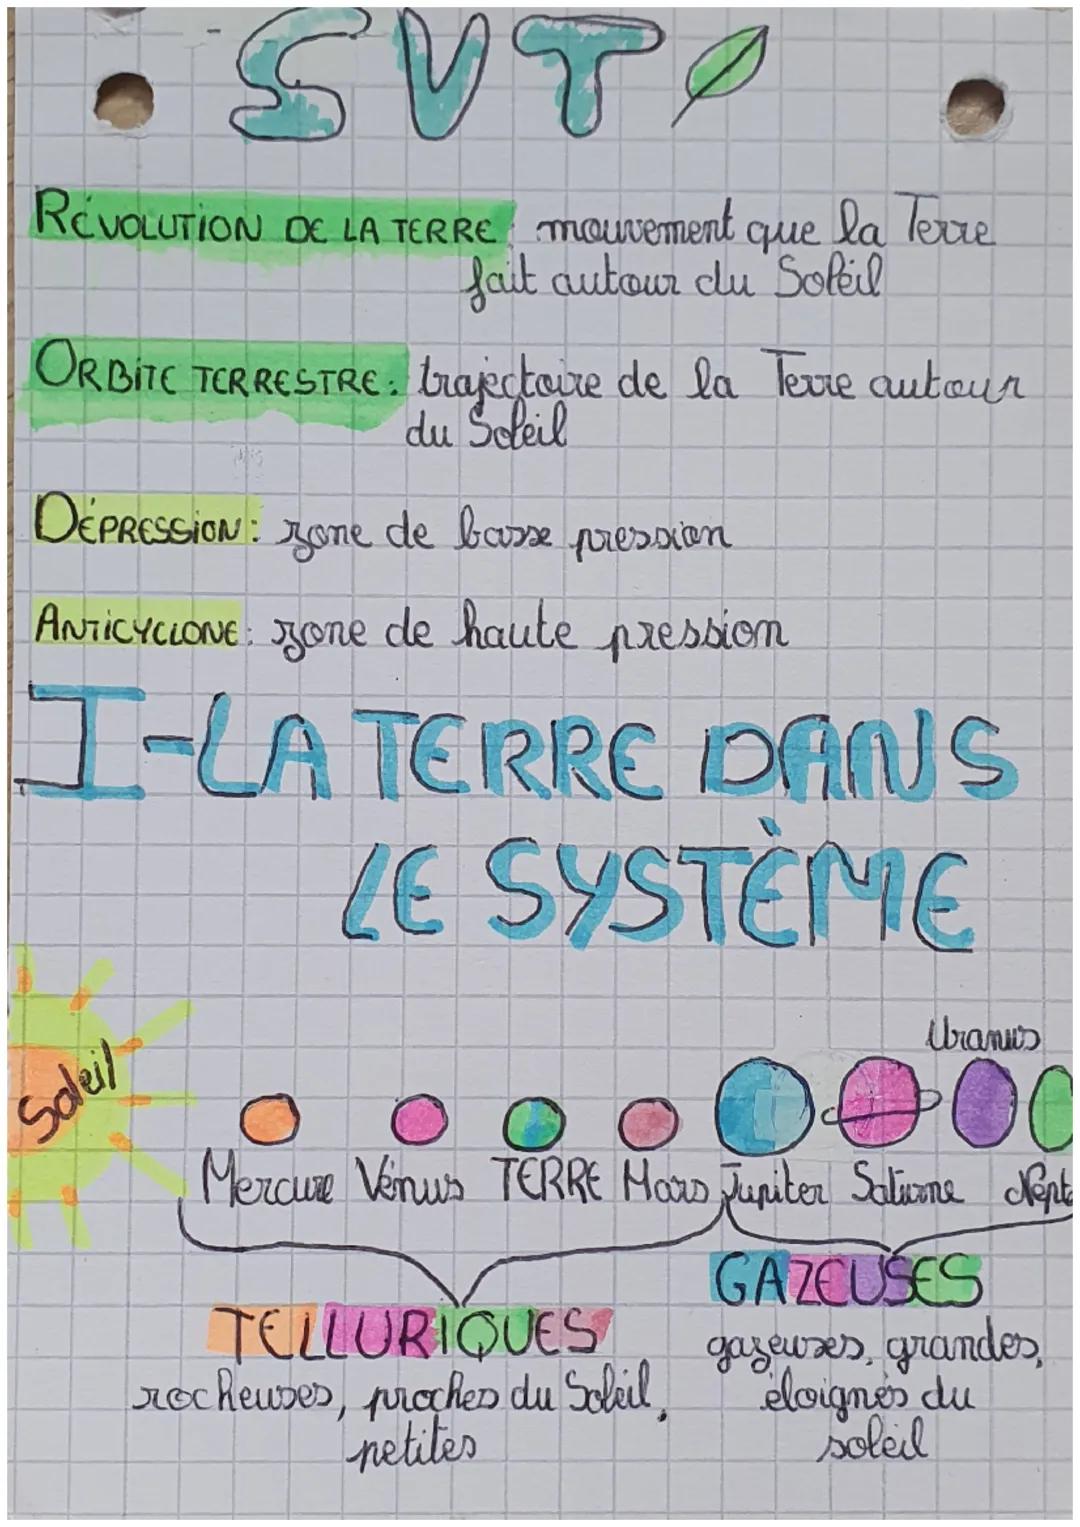 SVT
RÉVOLUTION DE LA TERRE : mouvement que la Terre
fait autour du Soleil
ORBITE TERRESTRE : trajectoire de la Terre autour
du Soleil
DÉPRESSION : zone de basse pression
ANTICYCLONE : zone de haute pression
I-LA TERRE DANS
LE SYSTÈME
Soleil
Uranus
Mercure Vénus TERRE Mars Jupiter Saturne Nept
TELLURIQUES
rocheuses, proches du Soleil,
petites
GAZEUSES
gazeuses, grandes,
éloignés du
soleil